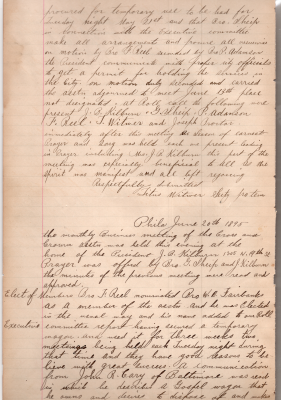 procured for temporary use to be held for
Sunday night May 31st and that Bro. Sheip
in connection with the Executive committee
make all arrangements and procure all minimum
on motion by Bro F Reek seconded by
the President communicate with proper city officials
to get a permit for holding the services in
the City. on motion duly seconded and carried
the assts adjourned to meet June 13th place
not designated, at Roll call the following were
present J. R. Kilburn F. Sheip P. Adamson
F. Reek. S. Witmer and Joseph
immediately after this meeting a Season of earnest
Prayer and Song was held each one present leading
in Prayer including Mrs J. R. Kilburn this part of the
meeting was especially beneficial to all the
Spirit was manifest and all left rejoicing
Respectfully Submitted
Witmer Secty pro tem
Phila June 20th 1895
The monthly Business meeting of the Cross and
Crown assts was held this evening at the
home of the President J. R. Kilburn
Prayer was offered by Bro F Sheip and Kilburn
the minutes of the previous meeting were read and
approved.
Elect of Member Bro. F. Reek nominated Bro W. O. Fairbanks
as a member of the assts and he was Elected
in the usual way and his name added to our Roll
Executive committee report having secured a temporary
wagon and used it for three weeks
meetings being held each Sunday night during
that time and they have good reasons to be-
lieve with great success. A communication
from John R. Cary of Baltimore was read
in which he described a Gospel wagon that
he owns and desires to dispose of and under